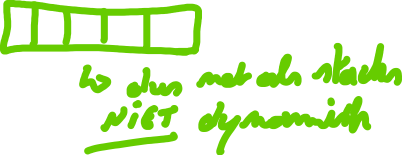 ↳ dus net als stacks
NIET dynamisch